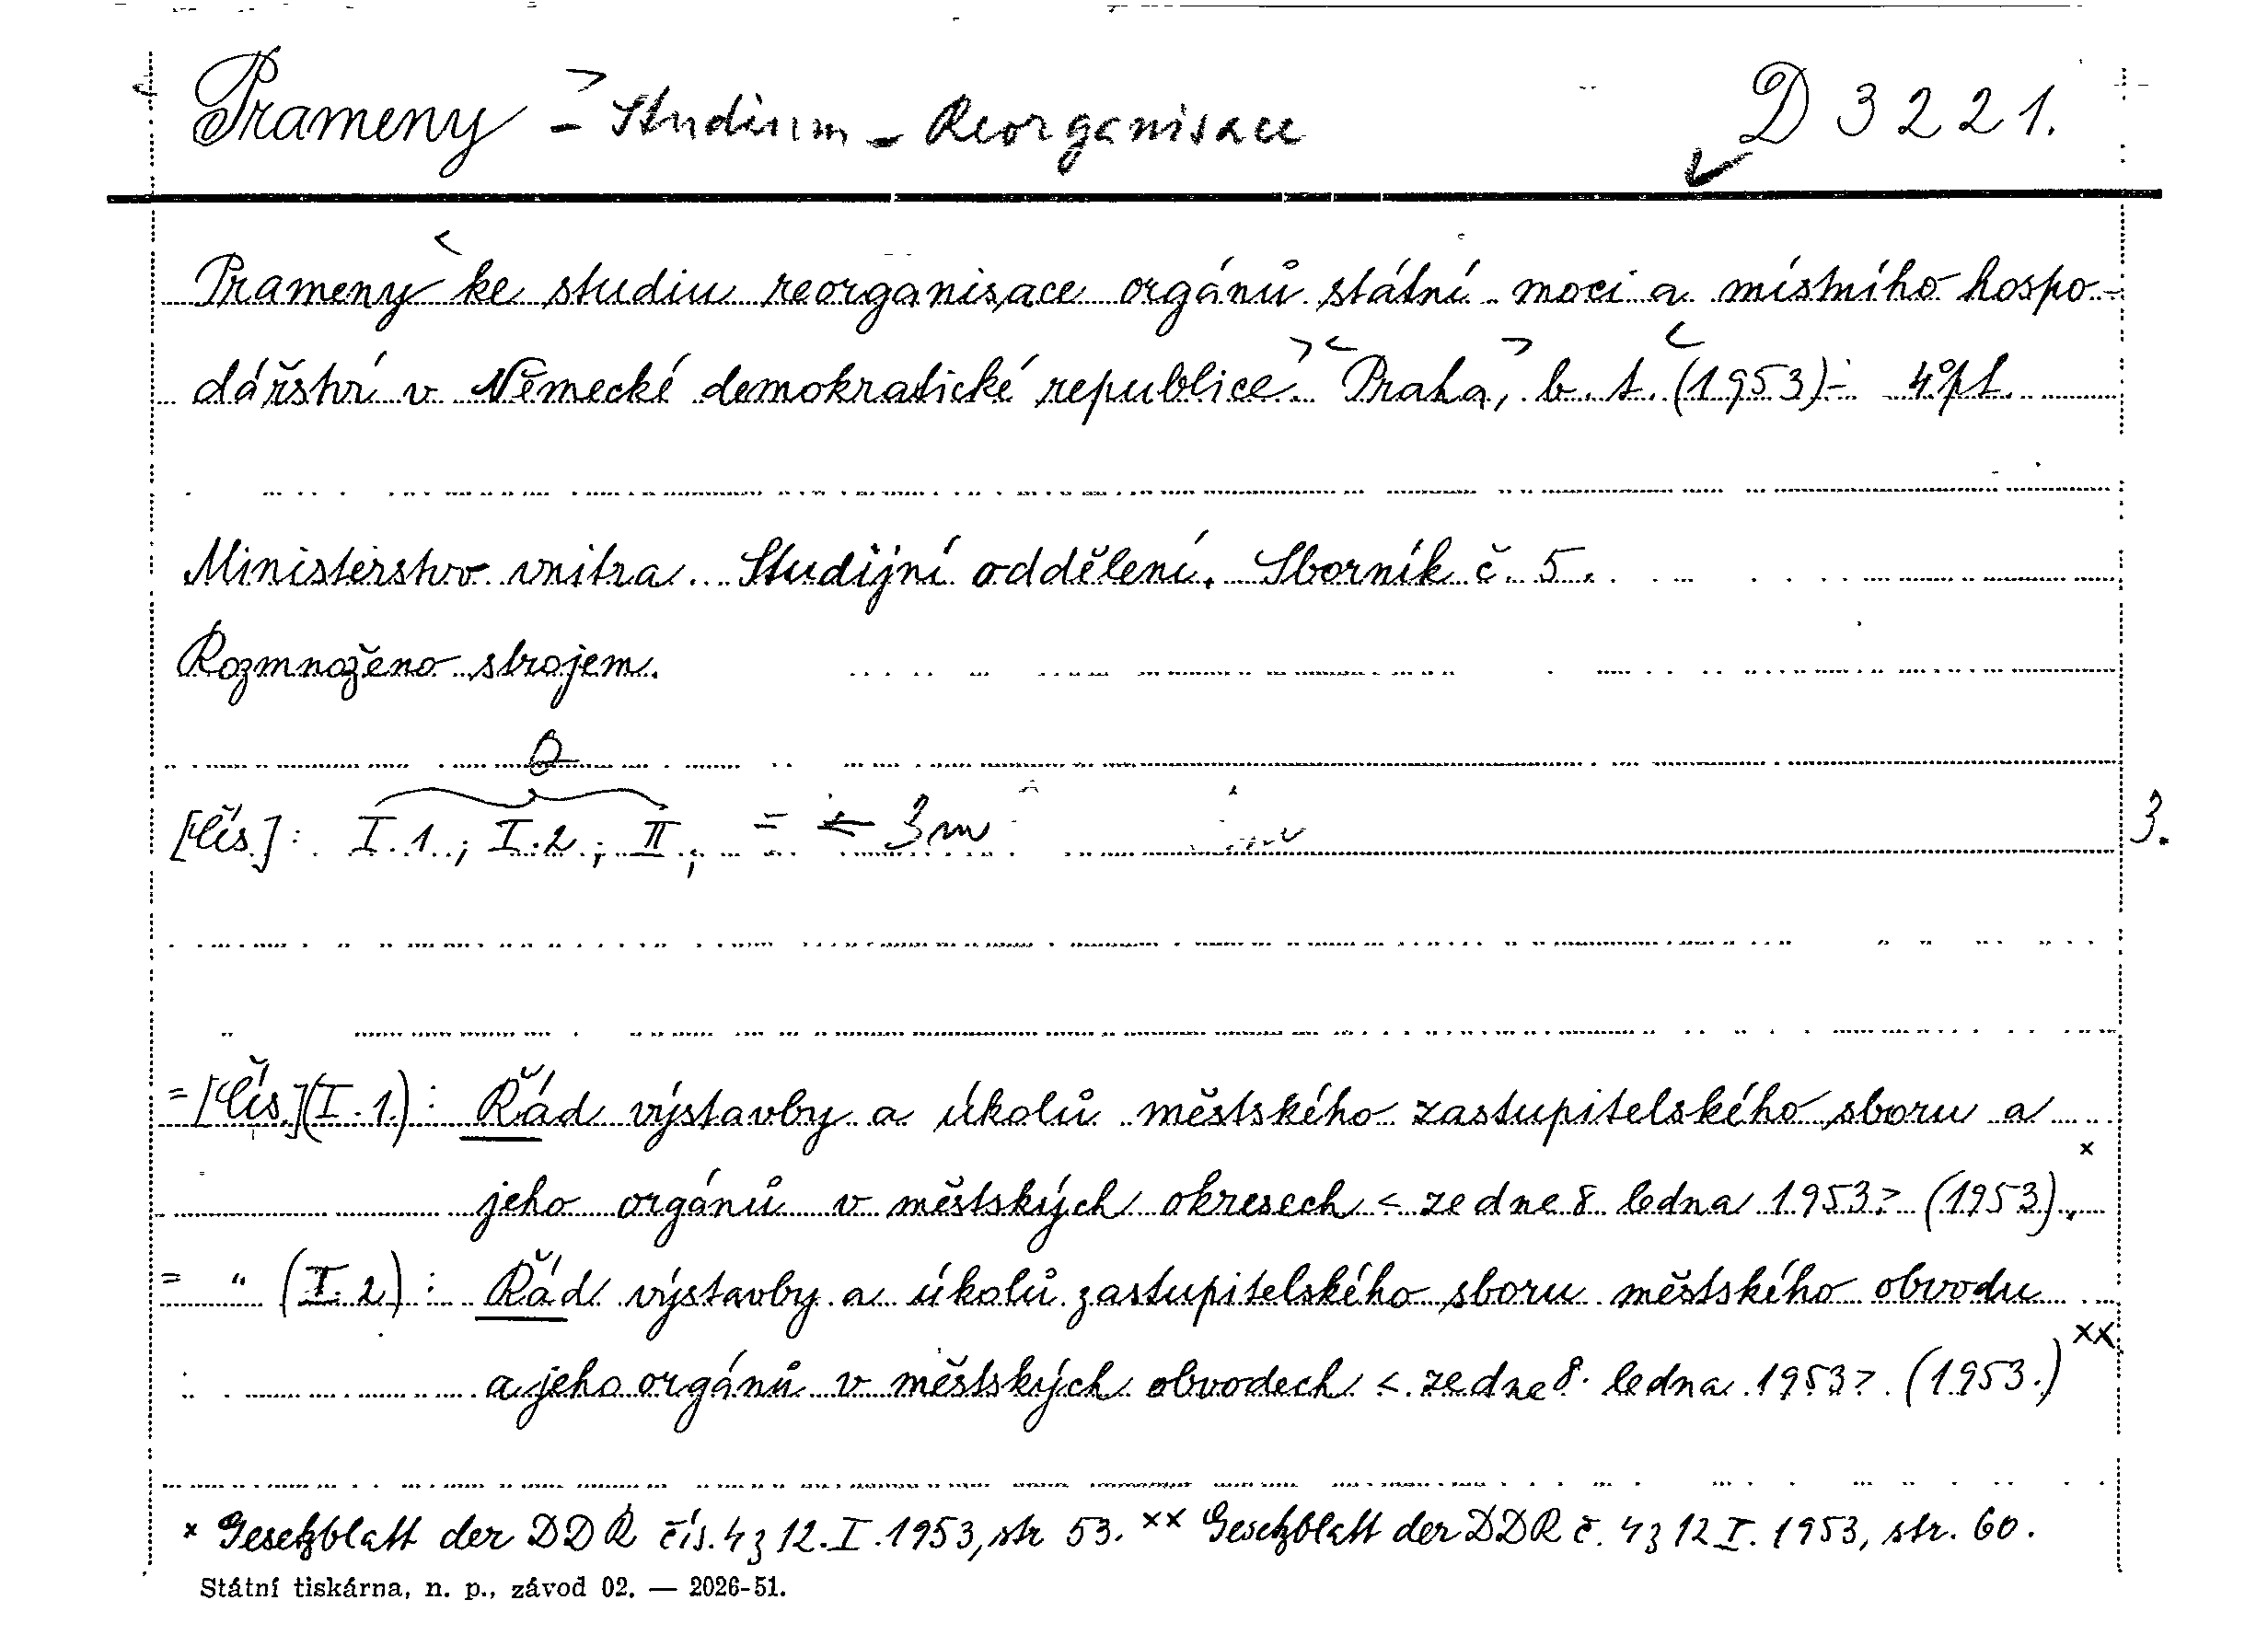 Prameny - Studium - Reorganisace D 3221.
Prameny ke studiu reorganisace orgánů státní moci a místního hospo-
dářství v Německé demokratické republice. Praha, b. t. (1953)- 4° pt.
Ministerstvo vnitra. Studijní oddělení. Sborník č. 5.
Rozmnoženo strojem.
[Čís.]: I.1.; I.2.; II; = ← 3m 3.
= [Čís.](I.1.): Řád výstavby a úkolů městského zastupitelského sboru a
jeho orgánů v městských okresech < ze dne 8. ledna 1953> (1953). x
= " (I.2): Řád výstavby a úkolů zastupitelského sboru městského obvodu
a jeho orgánů v městských obvodech < ze dne 8. ledna 1953> (1953.) xx
x Gesetzblatt der DDR čís. 4 z 12. I. 1953, str 53. xx Gesetzblatt der DDR č. 4 z 12 I. 1953, str. 60.
Státní tiskárna, n. p., závod 02. — 2026-51.